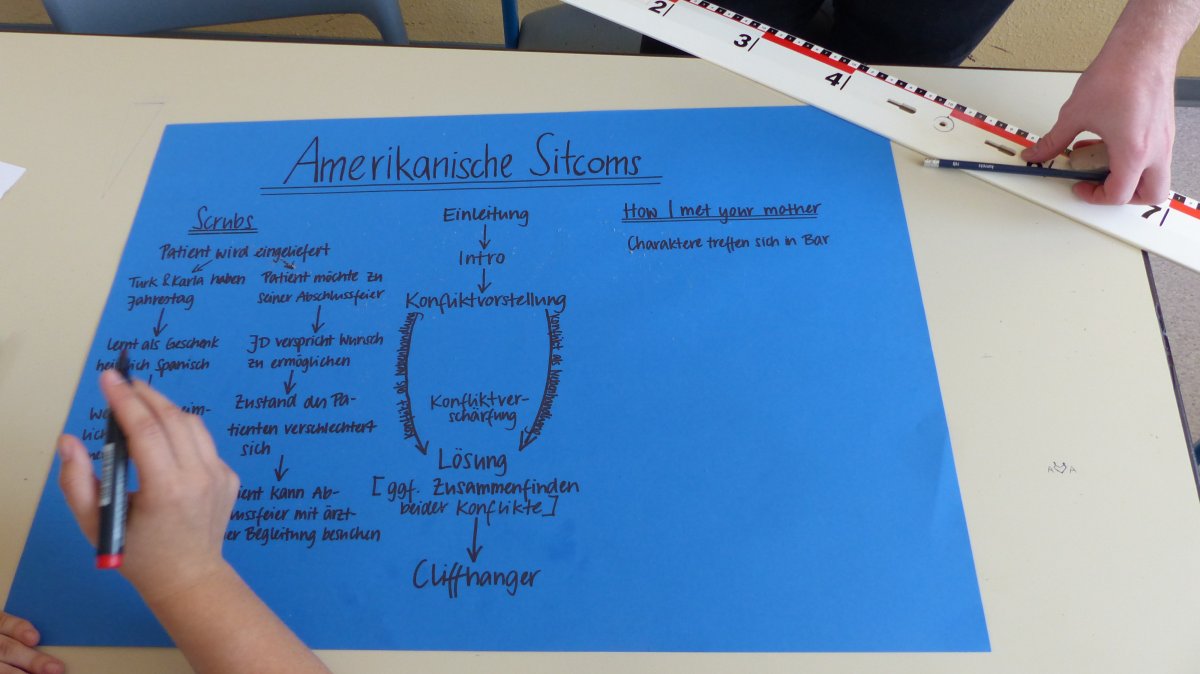 Amerikanische Sitcoms
Scrubs
Patient wird eingeliefert
Turk & Karla haben
Jahrestag
lernt als Geschenk
Spanisch
Patient möchte zu
seiner Abschlussfeier
JD verspricht Wunsch
zu ermöglichen
Zustand des Pa-
tienten verschlechtert
sich
kann Ab-
mit ärzt-
Begleitung besuchen
Einleitung
Intro
Konfliktvorstellung
Konflikt als Nebenhandlung
Konflikt als Haupthandlung
Konfliktver-
schärfung
Lösung
[ggf. Zusammenfinden
beider Konflikte]
Cliffhanger
How I met your mother
Charaktere treffen sich in Bar
2
3
4
7
A A